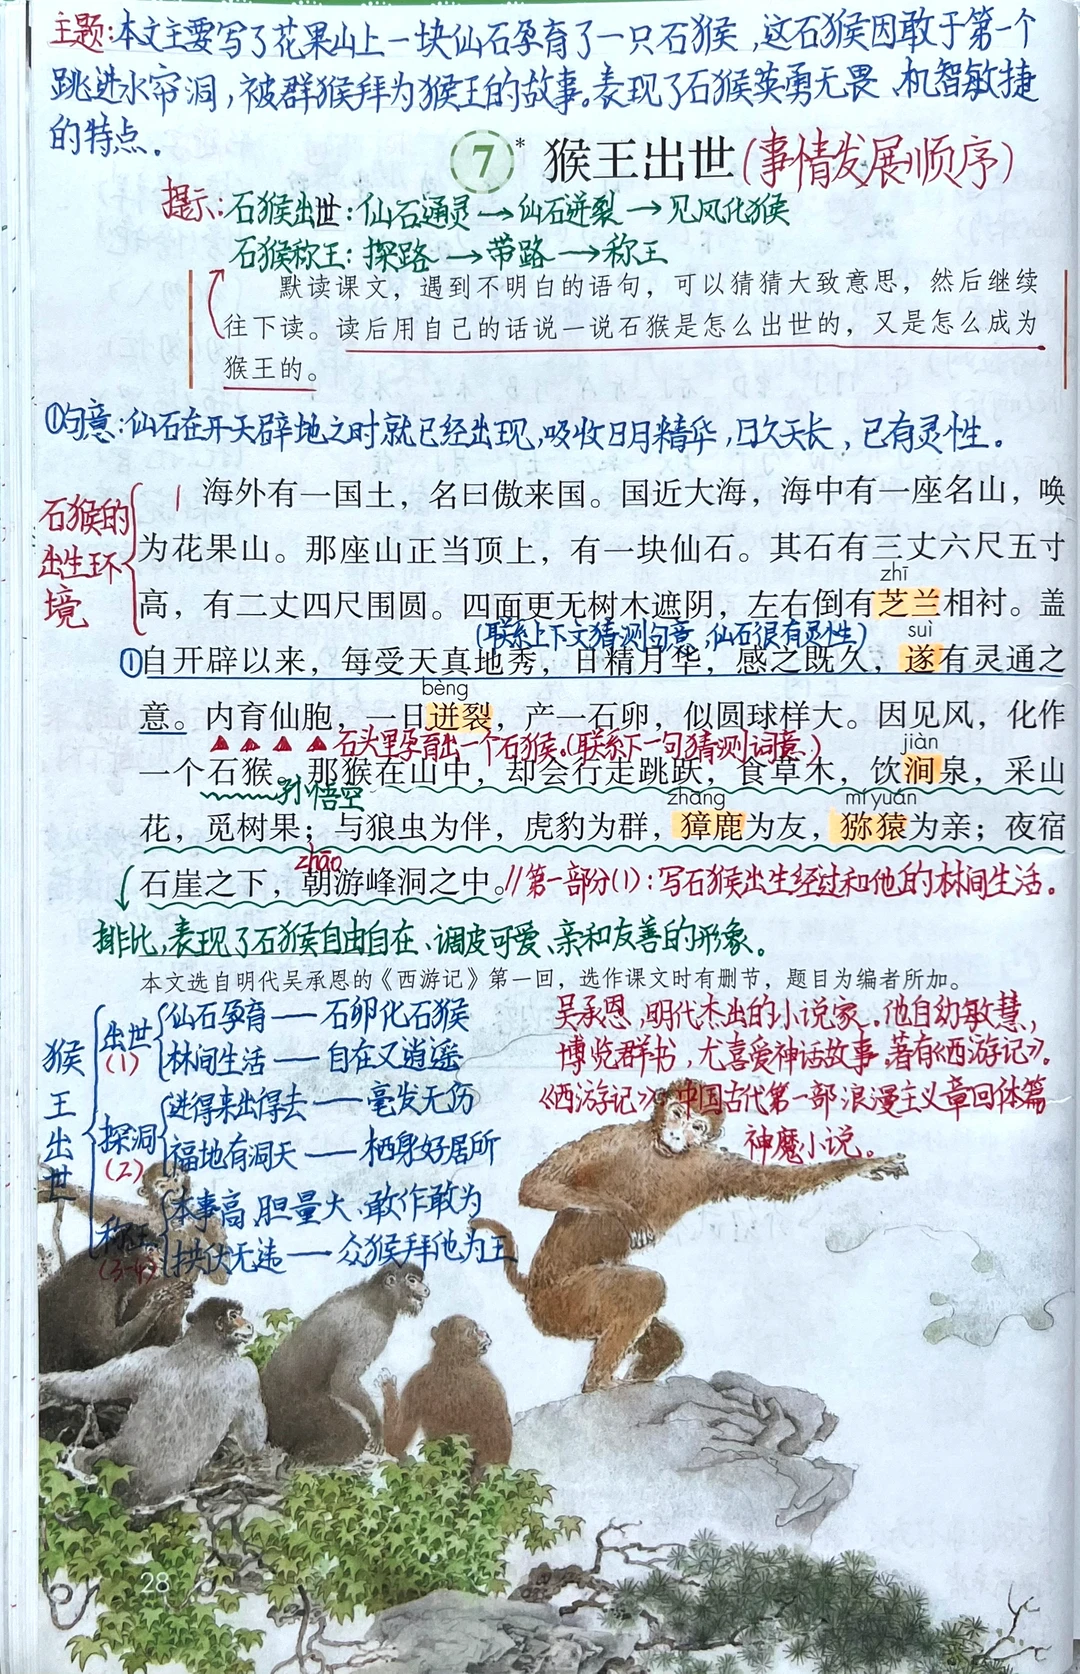 主题:本文主要写了花果山上一块仙石孕育了一只石猴，这石猴因敢于第一个
跳进水帘洞，被群猴拜为猴王的故事。表现了石猴英勇无畏、机智敏捷
的特点。
7* 猴王出世(事情发展顺序)
提示:石猴出世:仙石通灵→仙石迸裂→见风化猴
石猴称王:探路→带路→称王
默读课文，遇到不明白的语句，可以猜猜大致意思，然后继续
往下读。读后用自己的话说一说石猴是怎么出世的，又是怎么成为
猴王的。
①句意:仙石在开天辟地之时就已经出现，吸收日月精华，日久天长，已有灵性。
石猴的
出生环
境
1 海外有一国土，名曰傲来国。国近大海，海中有一座名山，唤
为花果山。那座山正当顶上，有一块仙石。其石有三丈六尺五寸
zhī
高，有二丈四尺围圆。四面更无树木遮阴，左右倒有芝兰相衬。盖
(联系上下文猜测句意，仙石很有灵性)
suì
①自开辟以来，每受天真地秀，日精月华，感之既久，遂有灵通之
bèng
意。内育仙胞，一日迸裂，产一石卵，似圆球样大。因见风，化作
石头里孕育出一个石猴。(联系下一句猜测词意)
jiàn
一个石猴。那猴在山中，却会行走跳跃，食草木，饮涧泉，采山
孙悟空
zhāng mí yuán
花，觅树果；与狼虫为伴，虎豹为群，獐鹿为友，猕猿为亲；夜宿
zhāo
石崖之下，朝游峰洞之中。//第一部分(1):写石猴出生经过和他的林间生活。
排比，表现了石猴自由自在、调皮可爱、亲和友善的形象。
本文选自明代吴承恩的《西游记》第一回，选作课文时有删节，题目为编者所加。
猴王出世
出世
(1)
仙石孕育——石卵化石猴
林间生活——自在又逍遥
探洞
(2)
进得来出得去——毫发无伤
福地有洞天——栖身好居所
称王
(3-4)
本事高、胆量大、敢作敢为
拱伏无违——众猴拜他为王
吴承恩，明代杰出的小说家。他自幼敏慧，
博览群书，尤喜爱神话故事。著有《西游记》。
《西游记》中国古代第一部浪漫主义章回体篇
神魔小说。
28